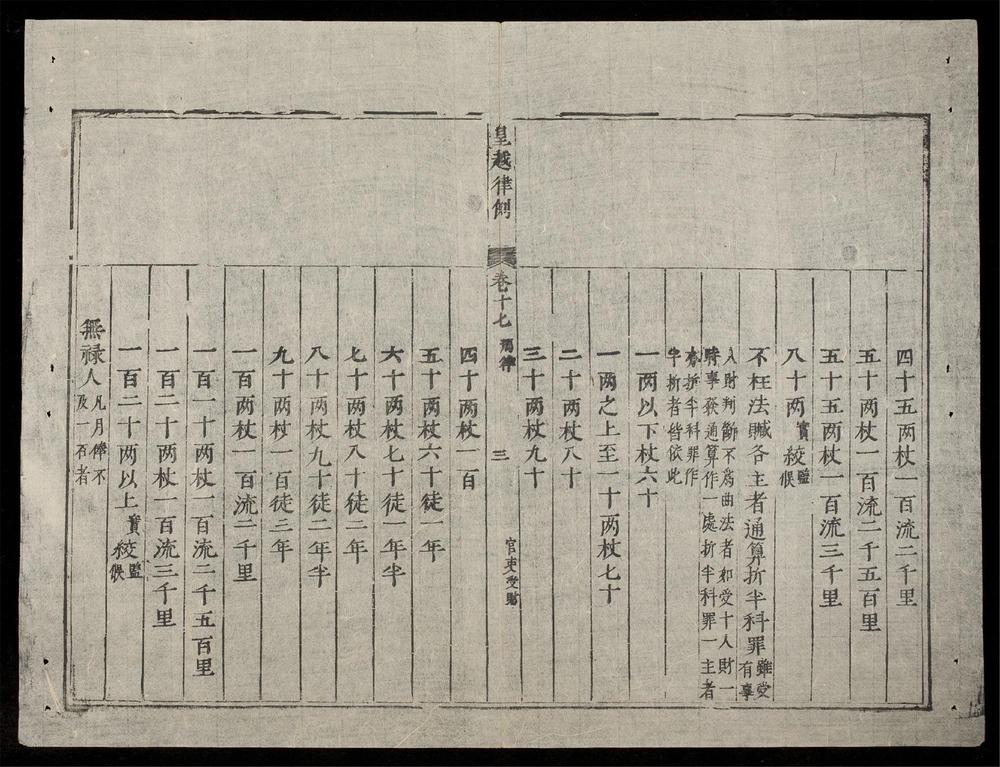 四十五两杖一百流二千里
五十两杖一百流二千五百里
五十五两杖一百流三千里
八十两實絞監候
不枉法贓各主者通算折半科罪雖受有事
人財判斷不爲曲法者如受十人財一
時事發通算作一處折半科罪一主者
亦折半科罪作
半折者皆依此
一两以下杖六十
一两之上至一十两杖七十
二十两杖八十
三十两杖九十
皇越律例 卷十七 刑律 三 官吏受財
四十两杖一百
五十两杖六十徒一年
六十两杖七十徒一年半
七十两杖八十徒二年
八十两杖九十徒二年半
九十两杖一百徒三年
一百两杖一百流二千里
一百一十两杖一百流二千五百里
一百二十两杖一百流三千里
一百二十两以上實絞監候
無禄人凡月俸不及一石者